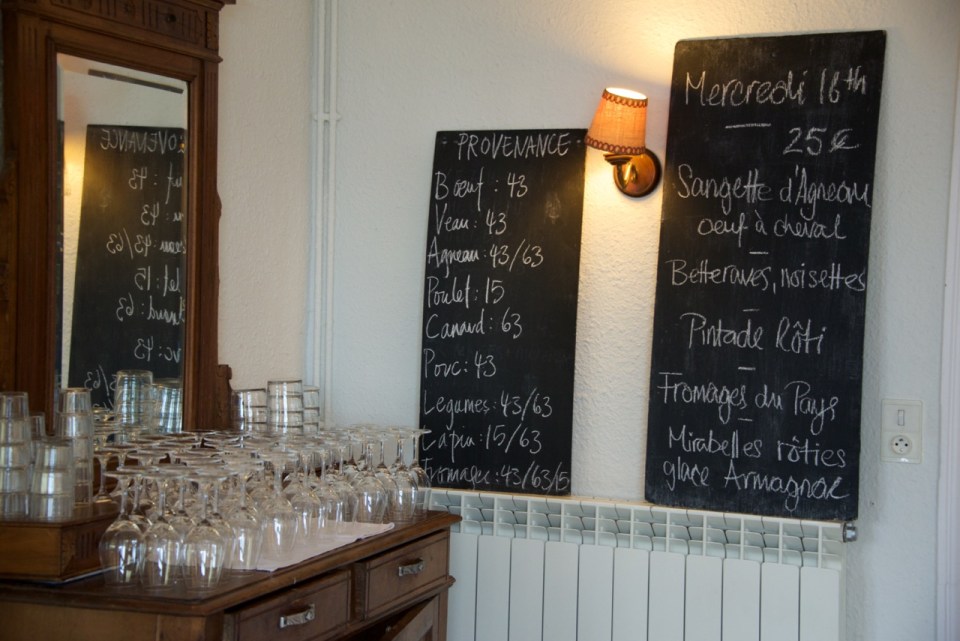 - PROVENANCE -
Bœuf : 43
Veau : 43
Agneau : 43/63
Poulet : 15
Canard : 63
Porc : 43
Légumes : 43/63
Lapin : 15/63
Fromages : 43/63/15
Mercredi 16th
25€
Sangette d'Agneau
oeuf à cheval
Betteraves, noisettes
Pintade Rôti
Fromages du Pays
Mirabelles rôties
glace Armagnac